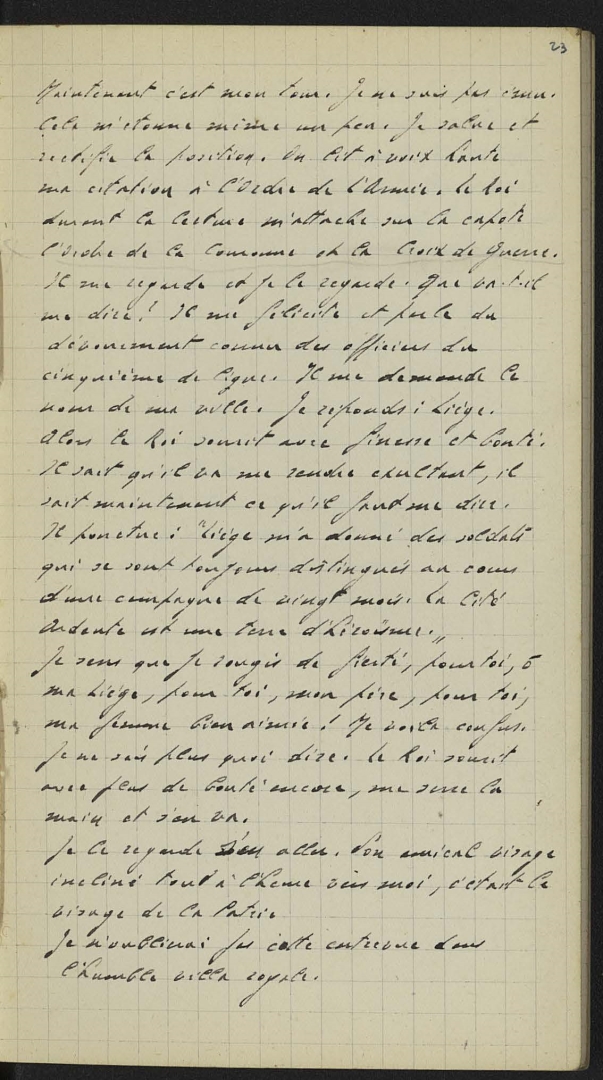 23
Maintenant c'est mon tour. Je ne suis pas ému.
Cela m'étonne même un peu. Je salue et
rectifie la position. On lit à voix haute
ma citation à l'Ordre de l'Armée. Le Roi
durant la lecture m'attache sur la capote
l'Ordre de la Couronne et la Croix de Guerre.
Il me regarde et je le regarde. Que va-t-il
me dire! Il me félicite et parle du
dévouement connu des officiers du
cinquième de ligne. Il me demande le
nom de ma ville. Je réponds: Liège.
Alors le Roi sourit avec finesse et bonté.
Il sait qu'il va me rendre exultant, il
sait maintenant ce qu'il faut me dire.
Il ponctue: "Liège m'a donné des soldats
qui se sont toujours distingués au cours
d'une campagne de vingt mois. La Cité
Ardente est une terre d'héroïsme."
Je sens que je rougis de fierté, pour toi, ô
ma Liège, pour toi, mon père, pour toi,
ma femme bien aimée! Me voilà confus.
Je ne sais plus quoi dire. Le Roi sourit
avec plus de bonté encore, me serre la
main et s'en va.
Je le regarde s'en aller. Son amical visage
incliné tout à l'heure vers moi, c'était le
visage de la Patrie
Je n'oublierai pas cette entrevue dans
l'humble villa royale.